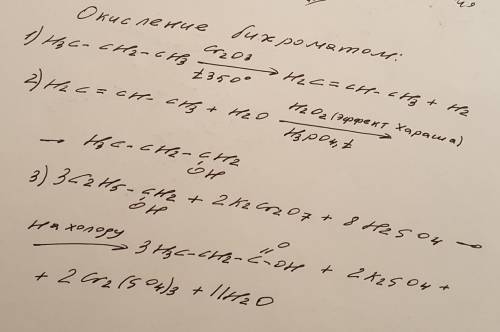 Окисление бихроматом:
1) H3C-CH2-CH3 Cr2O3 t350° → H2C=CH-CH3 + H2
2) H2C=CH-CH3 + H2O H2O2 (эффект Хараша) H3PO4, t
→ H3C-CH2-CH2 OH
3) 3C2H5-CH2 OH + 2K2Cr2O7 + 8H2SO4 →
На холоду → 3H3C-CH2-C=O-OH + 2K2SO4 +
+ 2Cr2(SO4)3 + 11H2O